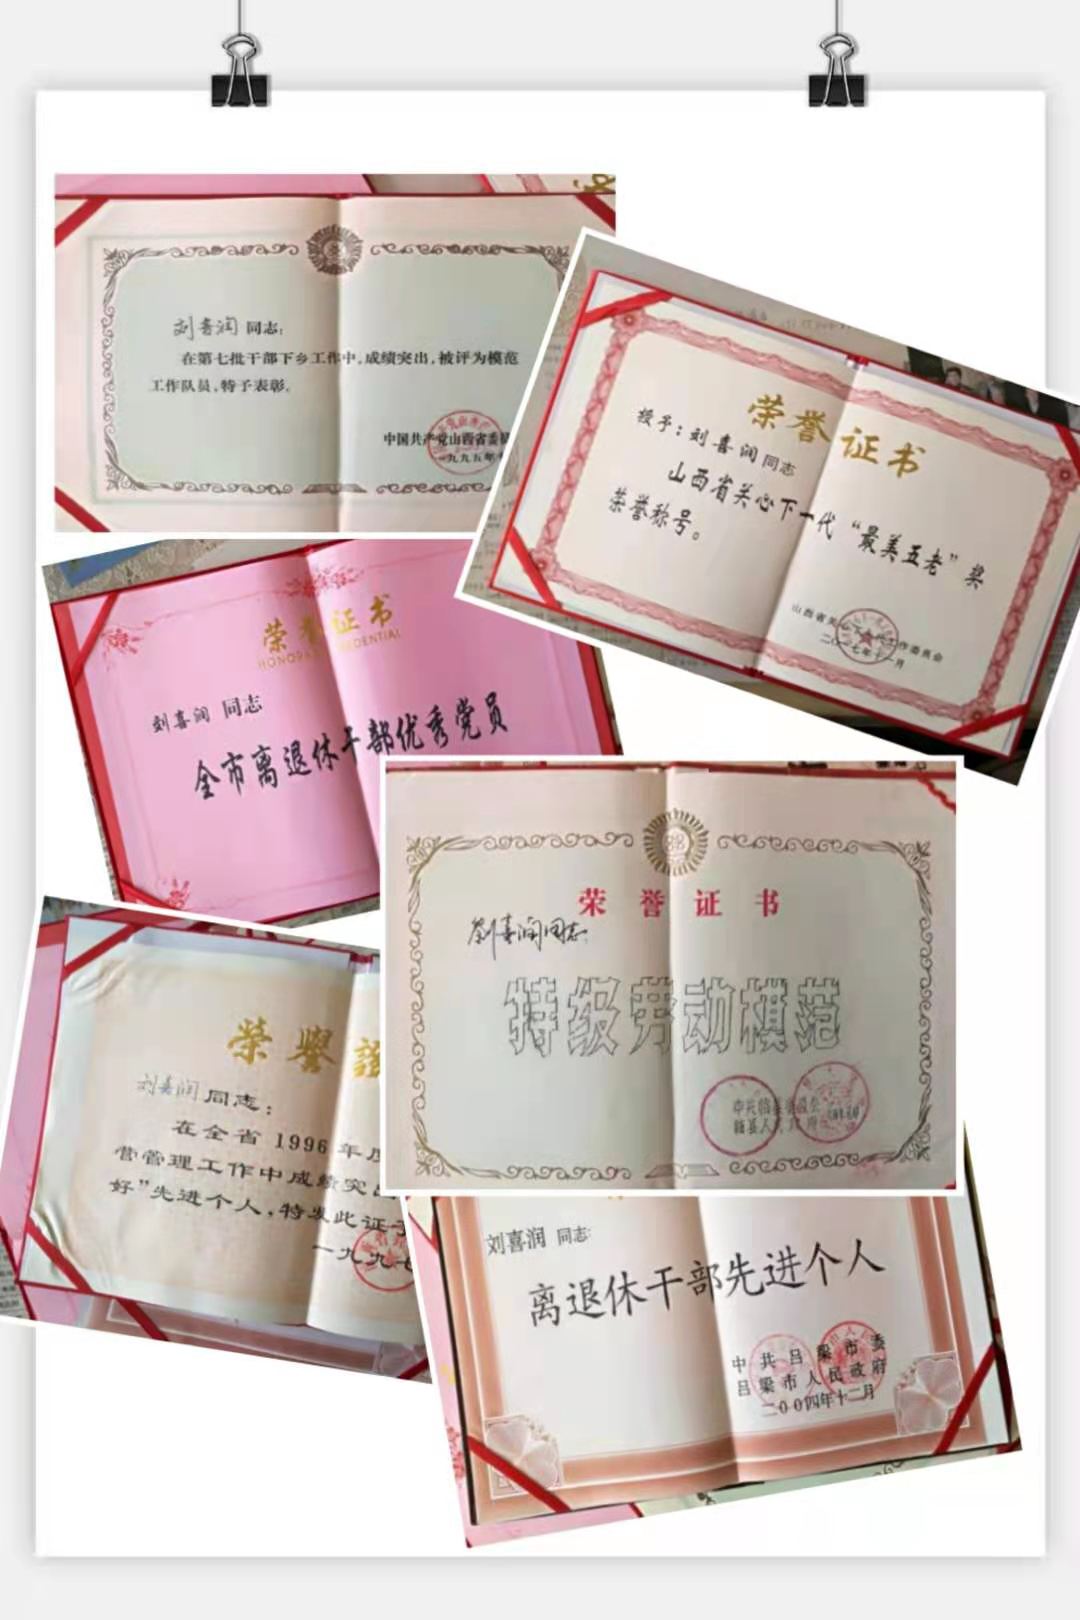 刘喜润 同志:
在第七批干部下乡工作中,成绩突出,被评为模范
工作队员,特予表彰。
中国共产党山西省委
一九九五年
荣誉证书
授予:刘喜润同志
山西省关心下一代“最美五老”奖
荣誉称号。
山西省关心下一代工作委员会
二〇一七年十一月
荣誉证书
刘喜润 同志
全市离退休干部优秀党员
荣誉证书
劉喜润同志
特级劳动模范
中共临县委员会
临县人民政府
榮譽
刘喜润同志:
在全省1996年度
营管理工作中成绩突出
好”先进个人,特发此证
一九九七
刘喜润 同志:
离退休干部先进个人
中共吕梁市委
吕梁市人民政府
二00四年十二月